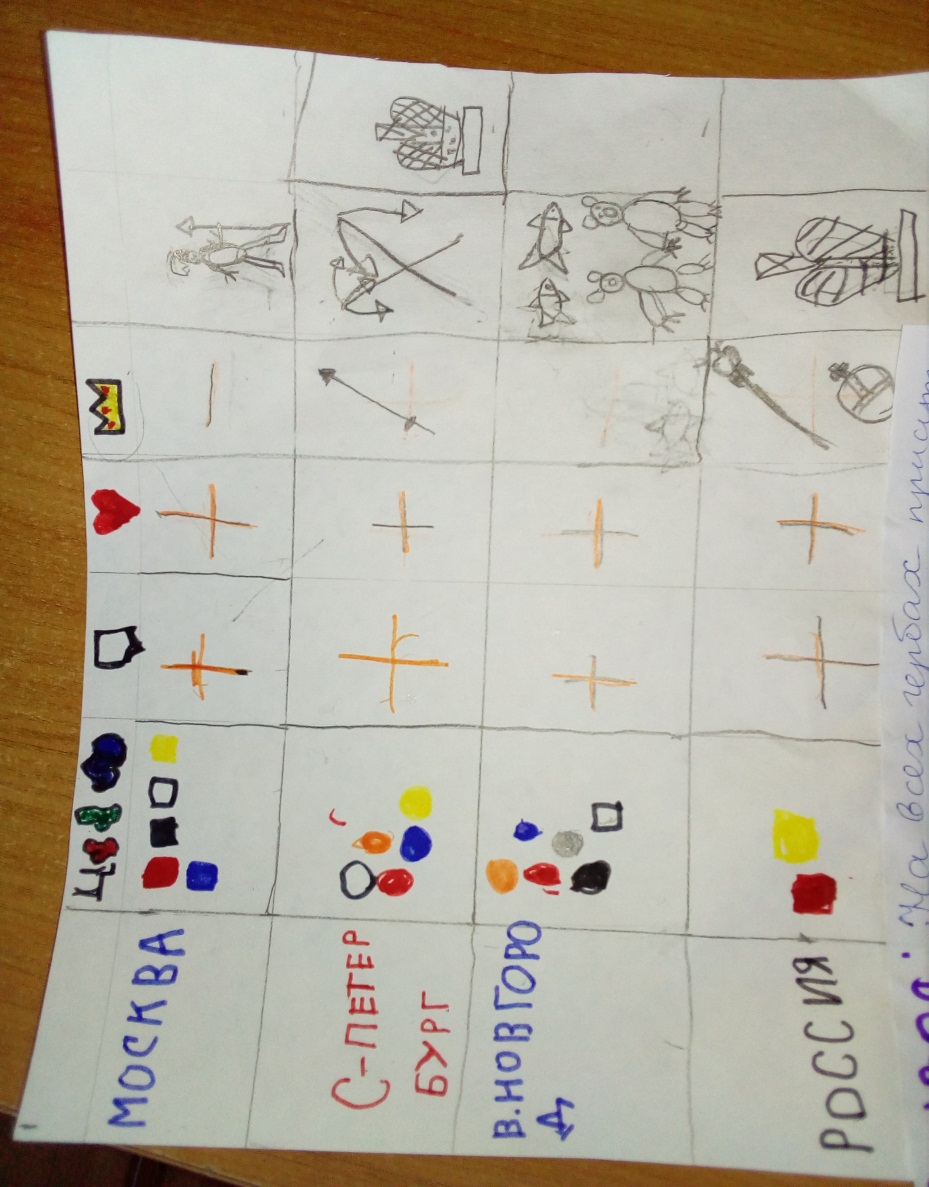 МОСКВА
С-ПЕТЕР
БУРГ
В.НОВГОРО
Д
РОССИЯ
На всех гербах